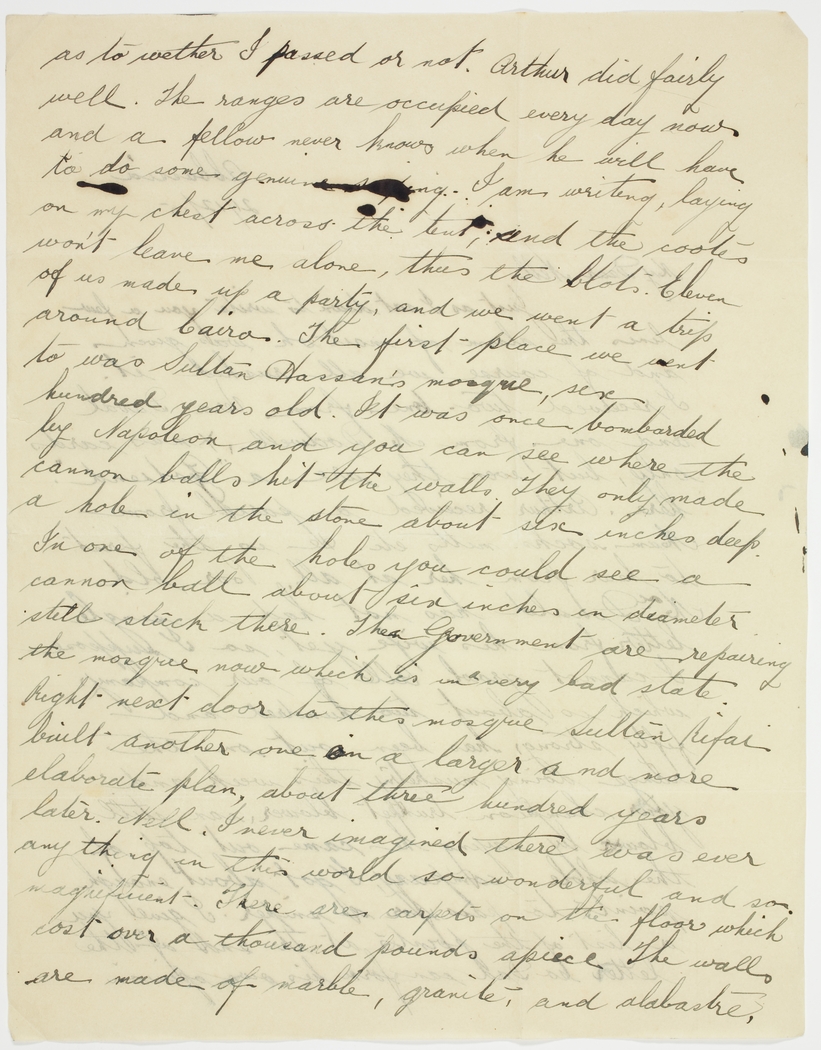 as to wether I passed or not. Arthur did fairly
well. The ranges are occupied every day now
and a fellow never knows when he will have
to do some genuine ing. I am writing, laying
on my chest across the tent, and the cooties
won't leave me alone, thus the blots. Eleven
of us made up a party, and we went a trip
around Cairo. The first place we went
to was Sultan Hassan's mosque, six
hundred years old. It was once bombarded
by Napoleon, and you can see where the
cannon balls hit the walls. They only made
a hole in the stone about six inches deep.
In one of the holes you could see a
cannon ball about six inches in diameter
still stuck there. The Government are repairing
the mosque now which is in a very bad state.
Right next door to this mosque Sultan Rifai
built another one on a larger and more
elaborate plan, about three hundred years
later. Nell, I never imagined there was ever
any thing in this world so wonderful and so
magificient. There are carpets on the floor which
cost over a thousand pounds apiece The walls
are made of marble, granite, and alabastre,